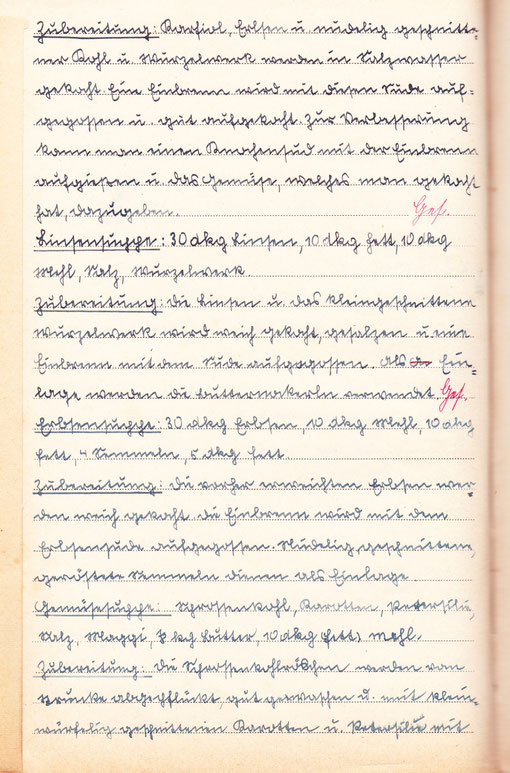 Zubereitung: Karfiol, Erbsen u. nudelig geschnitt=
ner Kohl u. Wurzelwerk werden in Salzwasser
gekocht. Eine Einbrenn wird mit diesen Sude auf=
gegossen u. gut aufgekocht. Zur Verbesserung
kann man einen Knochensud mit der Einbrenn
aufgießen u. das Gemüse, welches man gekocht
hat, dazugeben. Ges.
Linsensuppe: 30 dkg Linsen, 10 dkg Fett, 10 dkg
Mehl, Salz, Wurzelwerk
Zubereitung: Die Linsen u. das kleingeschnittene
Wurzelwerk wird weich gekocht, gesalzen u. eine
Einbrenn mit dem Sude aufgegossen. Als Ein=
lage werden die Butternockerln verwendet. Ges.
Erbsensuppe: 30 dkg Erbsen, 10 dkg Mehl, 10 dkg
Fett, 4 Semmeln, 5 dkg Fett.
Zubereitung: Die vorher erweichten Erbsen wer=
den weich gekocht. Die Einbrenn wird mit dem
Erbsensude aufgegossen. Nudelig, geschnittene,
geröstete Semmeln dienen als Einlage
Gemüsesuppe: Sprossenkohl, Karotten, Petersilie,
Salz, Maggi, kg Butter, 10 dkg Fett, Mehl.
Zubereitung: Die Sprossenkohlröschen werden vom
Strunke abgepflückt, gut gewaschen u. mit klein=
würfelig geschnittenen Karotten u. Petersilie mit